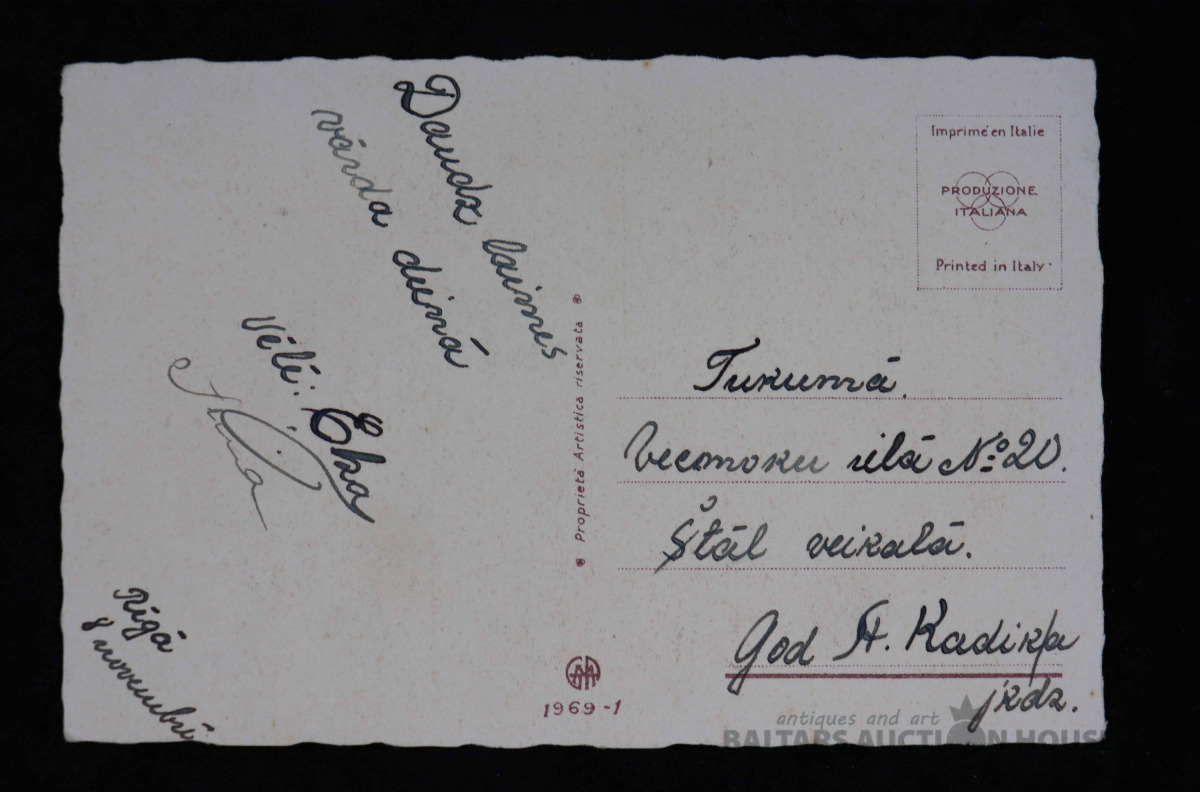 Daudz laimes
vārda dienā
Vēlē: Eka
Rīgā
8 novembrī
Proprietà Artistica riservata
1969-1
Imprimé en Italie
PRODUZIONE
ITALIANA
Printed in Italy
Tukumā.
Vecmoku ielā № 20.
Štāl veikalā.
God A. Kadiķa
jkdz.
antiques and art
BALTARS AUCTION HOUSE